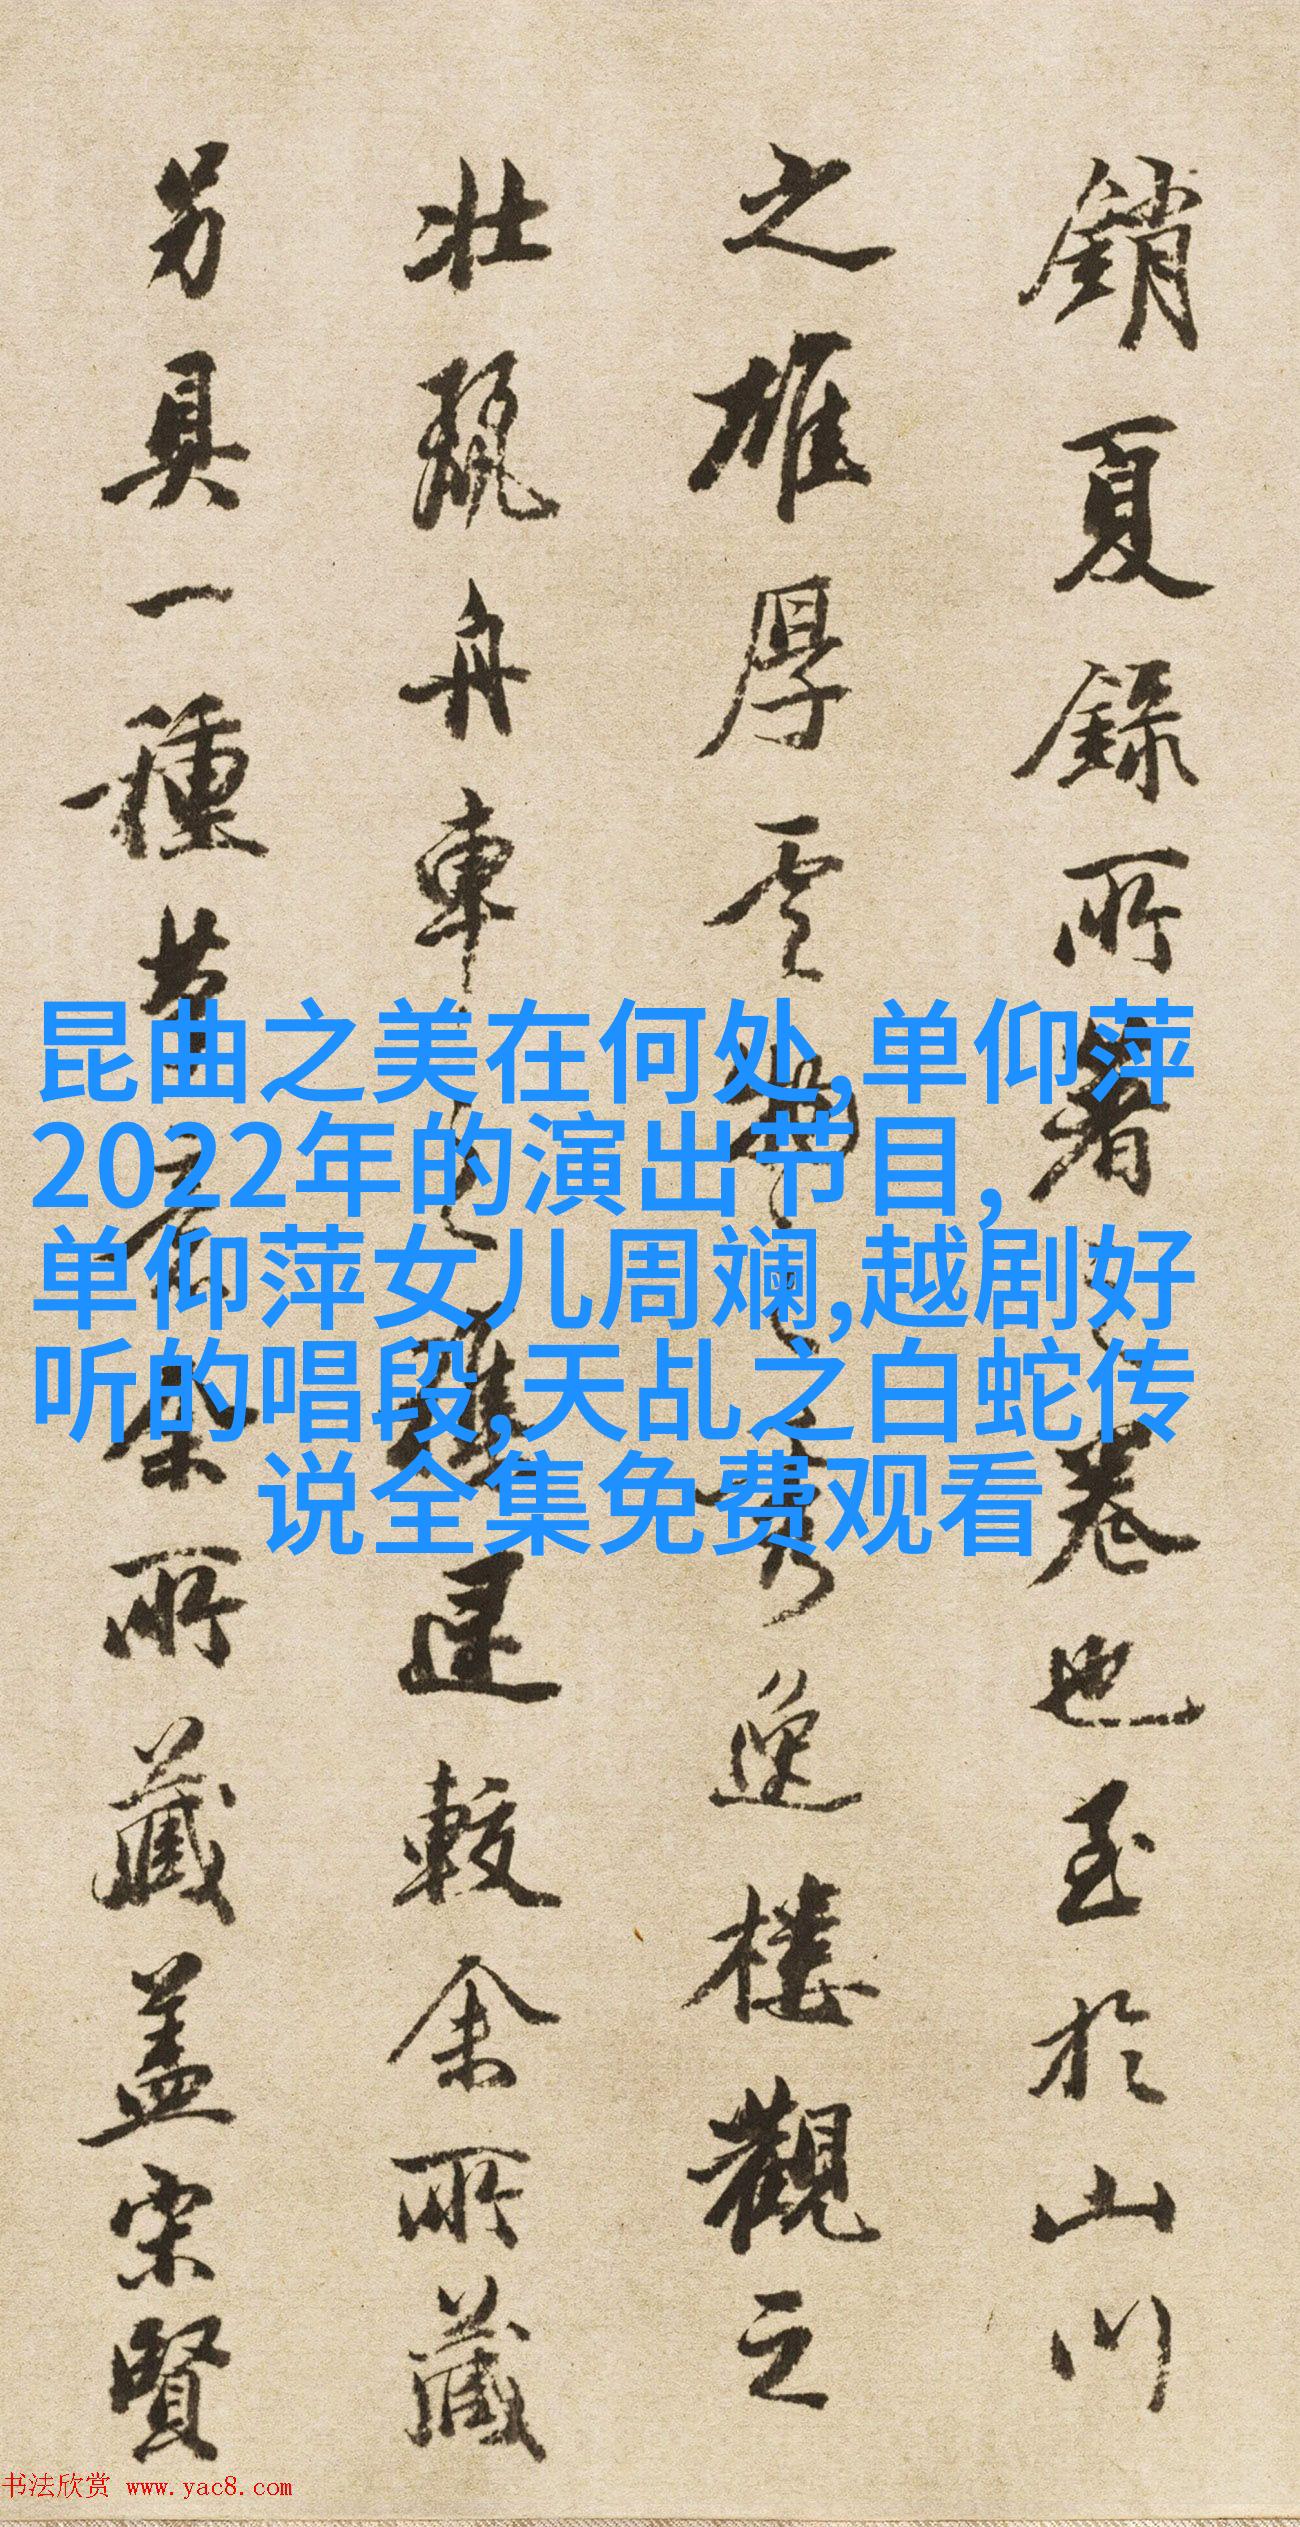 銷夏錄所著之卷也至於山川
之雄厚雲之秀逸樓觀之
壯麗舟車之較余所藏
另具一種筆意余所藏蓋宋賢
昆曲之美在何处,单仰萍
2022年的演出节目,
单仰萍女儿周斓,越剧好
听的唱段,天乩之白蛇传
说全集免费观看
书法欣赏 www.yac8.com